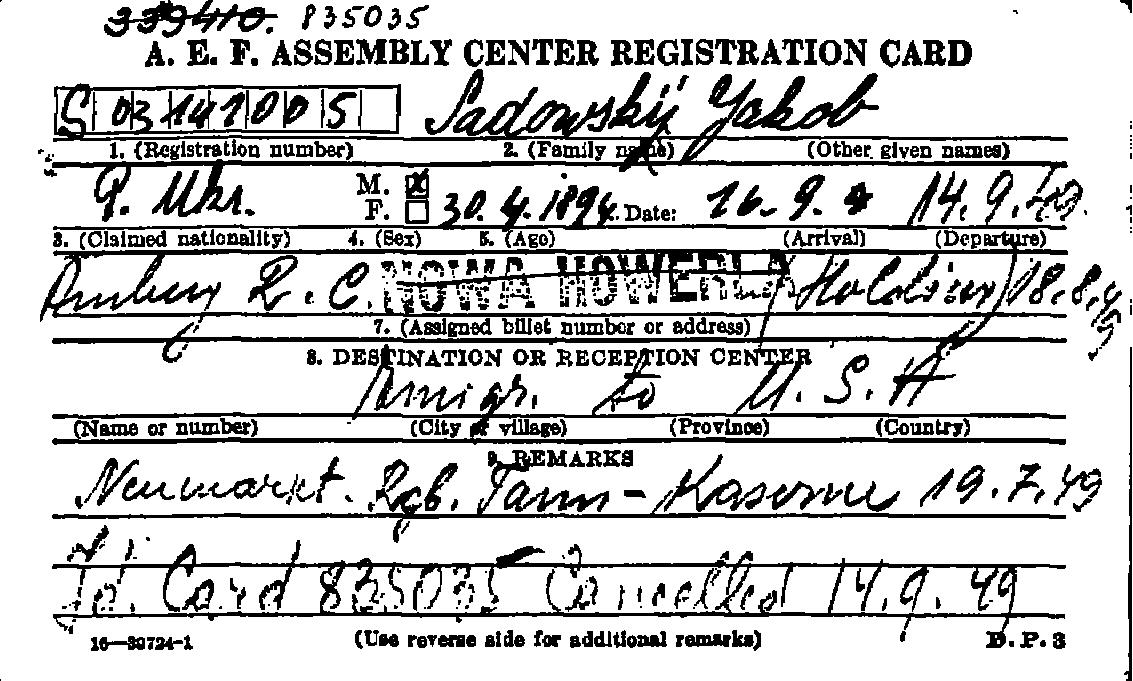 339410. 835035
A. E. F. ASSEMBLY CENTER REGISTRATION CARD
S 03 141005 Sadowskij Jakob
1. (Registration number) 2. (Family name) (Other given names)
P. Ukr. M. X 30. 4. 1894. Date: 16. 9. 14. 9. 49.
F.
3. (Claimed nationality) 4. (Sex) 5. (Age) (Arrival) (Departure)
Amberg R. C. NOWA HOWERLA (Holding) 18.8.45
7. (Assigned billet number or address)
8. DESTINATION OR RECEPTION CENTER
Emigr. to U. S. A
(Name or number) (City or village) (Province) (Country)
9. REMARKS
Neumarkt. Rgb. Tann - Kaserne 19. 7. 49
Id. Card 835035 Cancelled 14. 9. 49
16—39724-1 (Use reverse side for additional remarks) D. P. 3